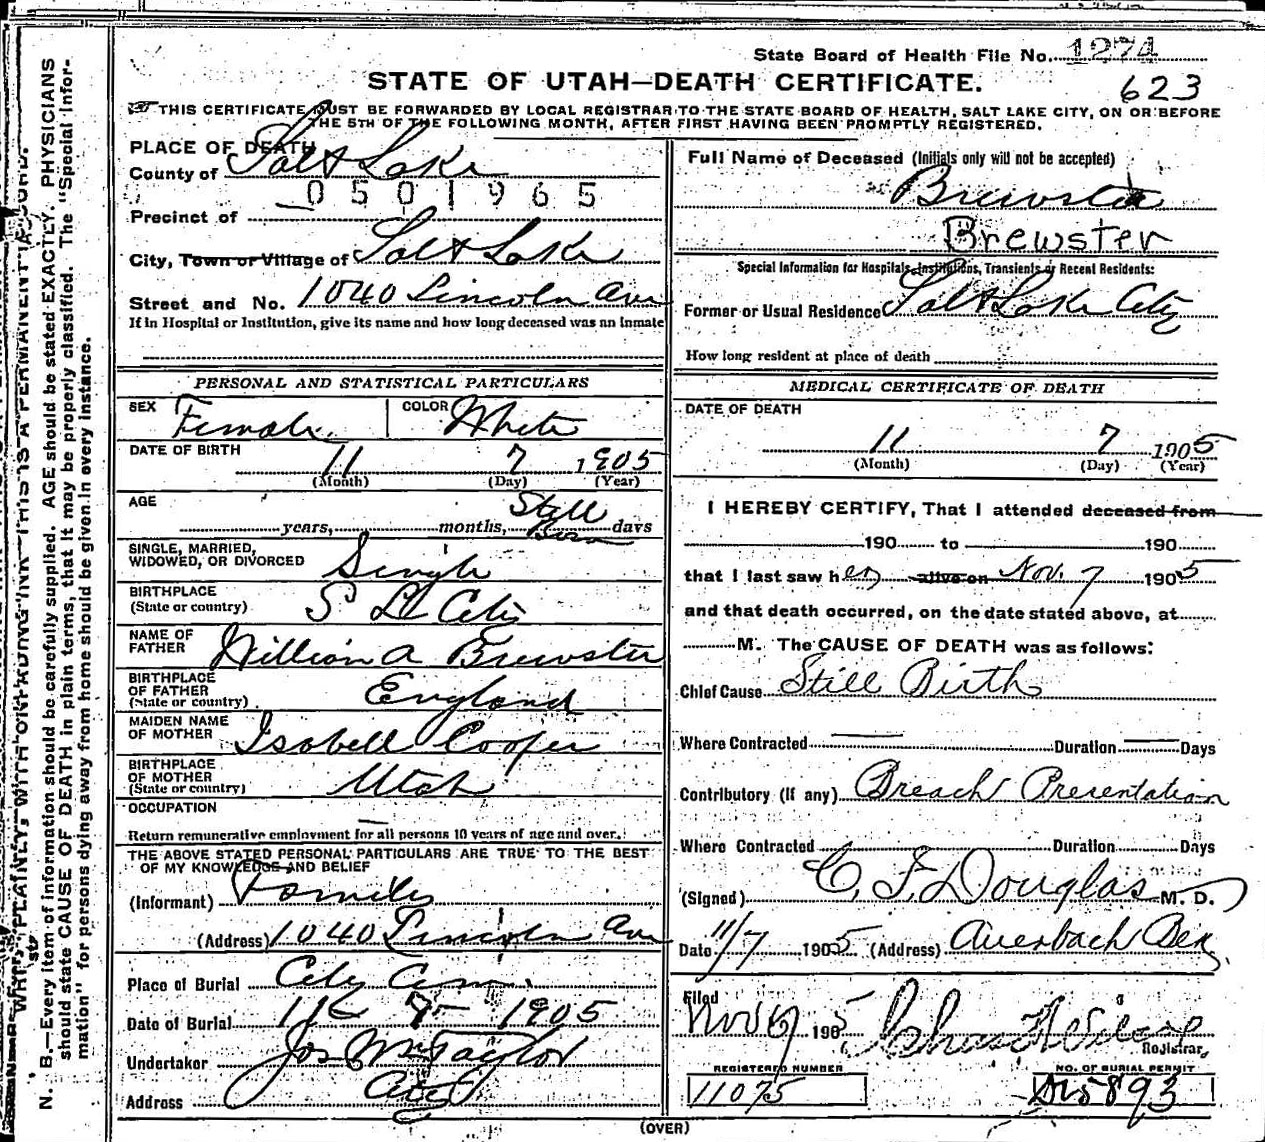 State Board of Health File No. 1274
STATE OF UTAH—DEATH CERTIFICATE.
623
THIS CERTIFICATE MUST BE FORWARDED BY LOCAL REGISTRAR TO THE STATE BOARD OF HEALTH, SALT LAKE CITY, ON OR BEFORE
THE 5TH OF THE FOLLOWING MONTH, AFTER FIRST HAVING BEEN PROMPTLY REGISTERED.
PLACE OF DEATH
County of Salt Lake
0501965
Precinct of
City, Town or Village of Salt Lake
Street and No. 1040 Lincoln Ave
If in Hospital or Institution, give its name and how long deceased was an inmate
PERSONAL AND STATISTICAL PARTICULARS
SEX Female COLOR White
DATE OF BIRTH 11 7 1905
(Month) (Day) (Year)
AGE years, months, Still Born days
SINGLE, MARRIED,
WIDOWED, OR DIVORCED Single
BIRTHPLACE
(State or country) S L City
NAME OF
FATHER William A Brewster
BIRTHPLACE
OF FATHER
(State or country) England
MAIDEN NAME
OF MOTHER Isabell Cooper
BIRTHPLACE
OF MOTHER
(State or country) Utah
OCCUPATION —
Return remunerative employment for all persons 10 years of age and over.
THE ABOVE STATED PERSONAL PARTICULARS ARE TRUE TO THE BEST
OF MY KNOWLEDGE AND BELIEF
(Informant) Family
(Address) 1040 Lincoln Ave
Place of Burial City Cem.
Date of Burial 11 7 1905
Undertaker Jos Wm Taylor
Address City
Full Name of Deceased (Initials only will not be accepted)
Brewster
Brewster
Special Information for Hospitals, Institutions, Transients or Recent Residents:
Former or Usual Residence Salt Lake City
How long resident at place of death
MEDICAL CERTIFICATE OF DEATH
DATE OF DEATH
11 7 1905
(Month) (Day) (Year)
I HEREBY CERTIFY, That I attended deceased from
190 to 190
that I last saw her alive on Nov. 7 1905
and that death occurred, on the date stated above, at
M. The CAUSE OF DEATH was as follows:
Chief Cause Still Birth
Where Contracted — Duration — Days
Contributory (If any) Breach Presentation
Where Contracted Duration Days
(Signed) C. F. Douglas M. D.
Date 11/7 1905 (Address) Auerbach
Filed Nov 1905 Chas
Registrar,
REGISTERED NUMBER
11075
NO. OF BURIAL PERMIT
5893
(OVER)
N. B.—Every item of information should be carefully supplied. AGE should be stated EXACTLY. PHYSICIANS
should state CAUSE OF DEATH in plain terms, that it may be properly classified. The "Special Infor-
mation" for persons dying away from home should be given in every instance.